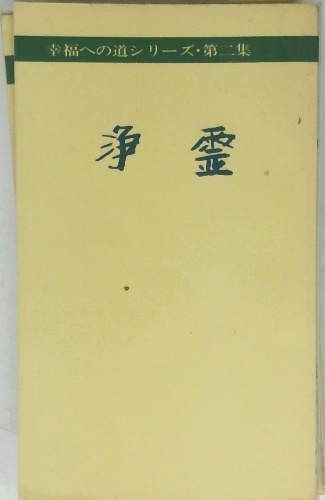 幸福への道シリーズ・第二集
浄霊